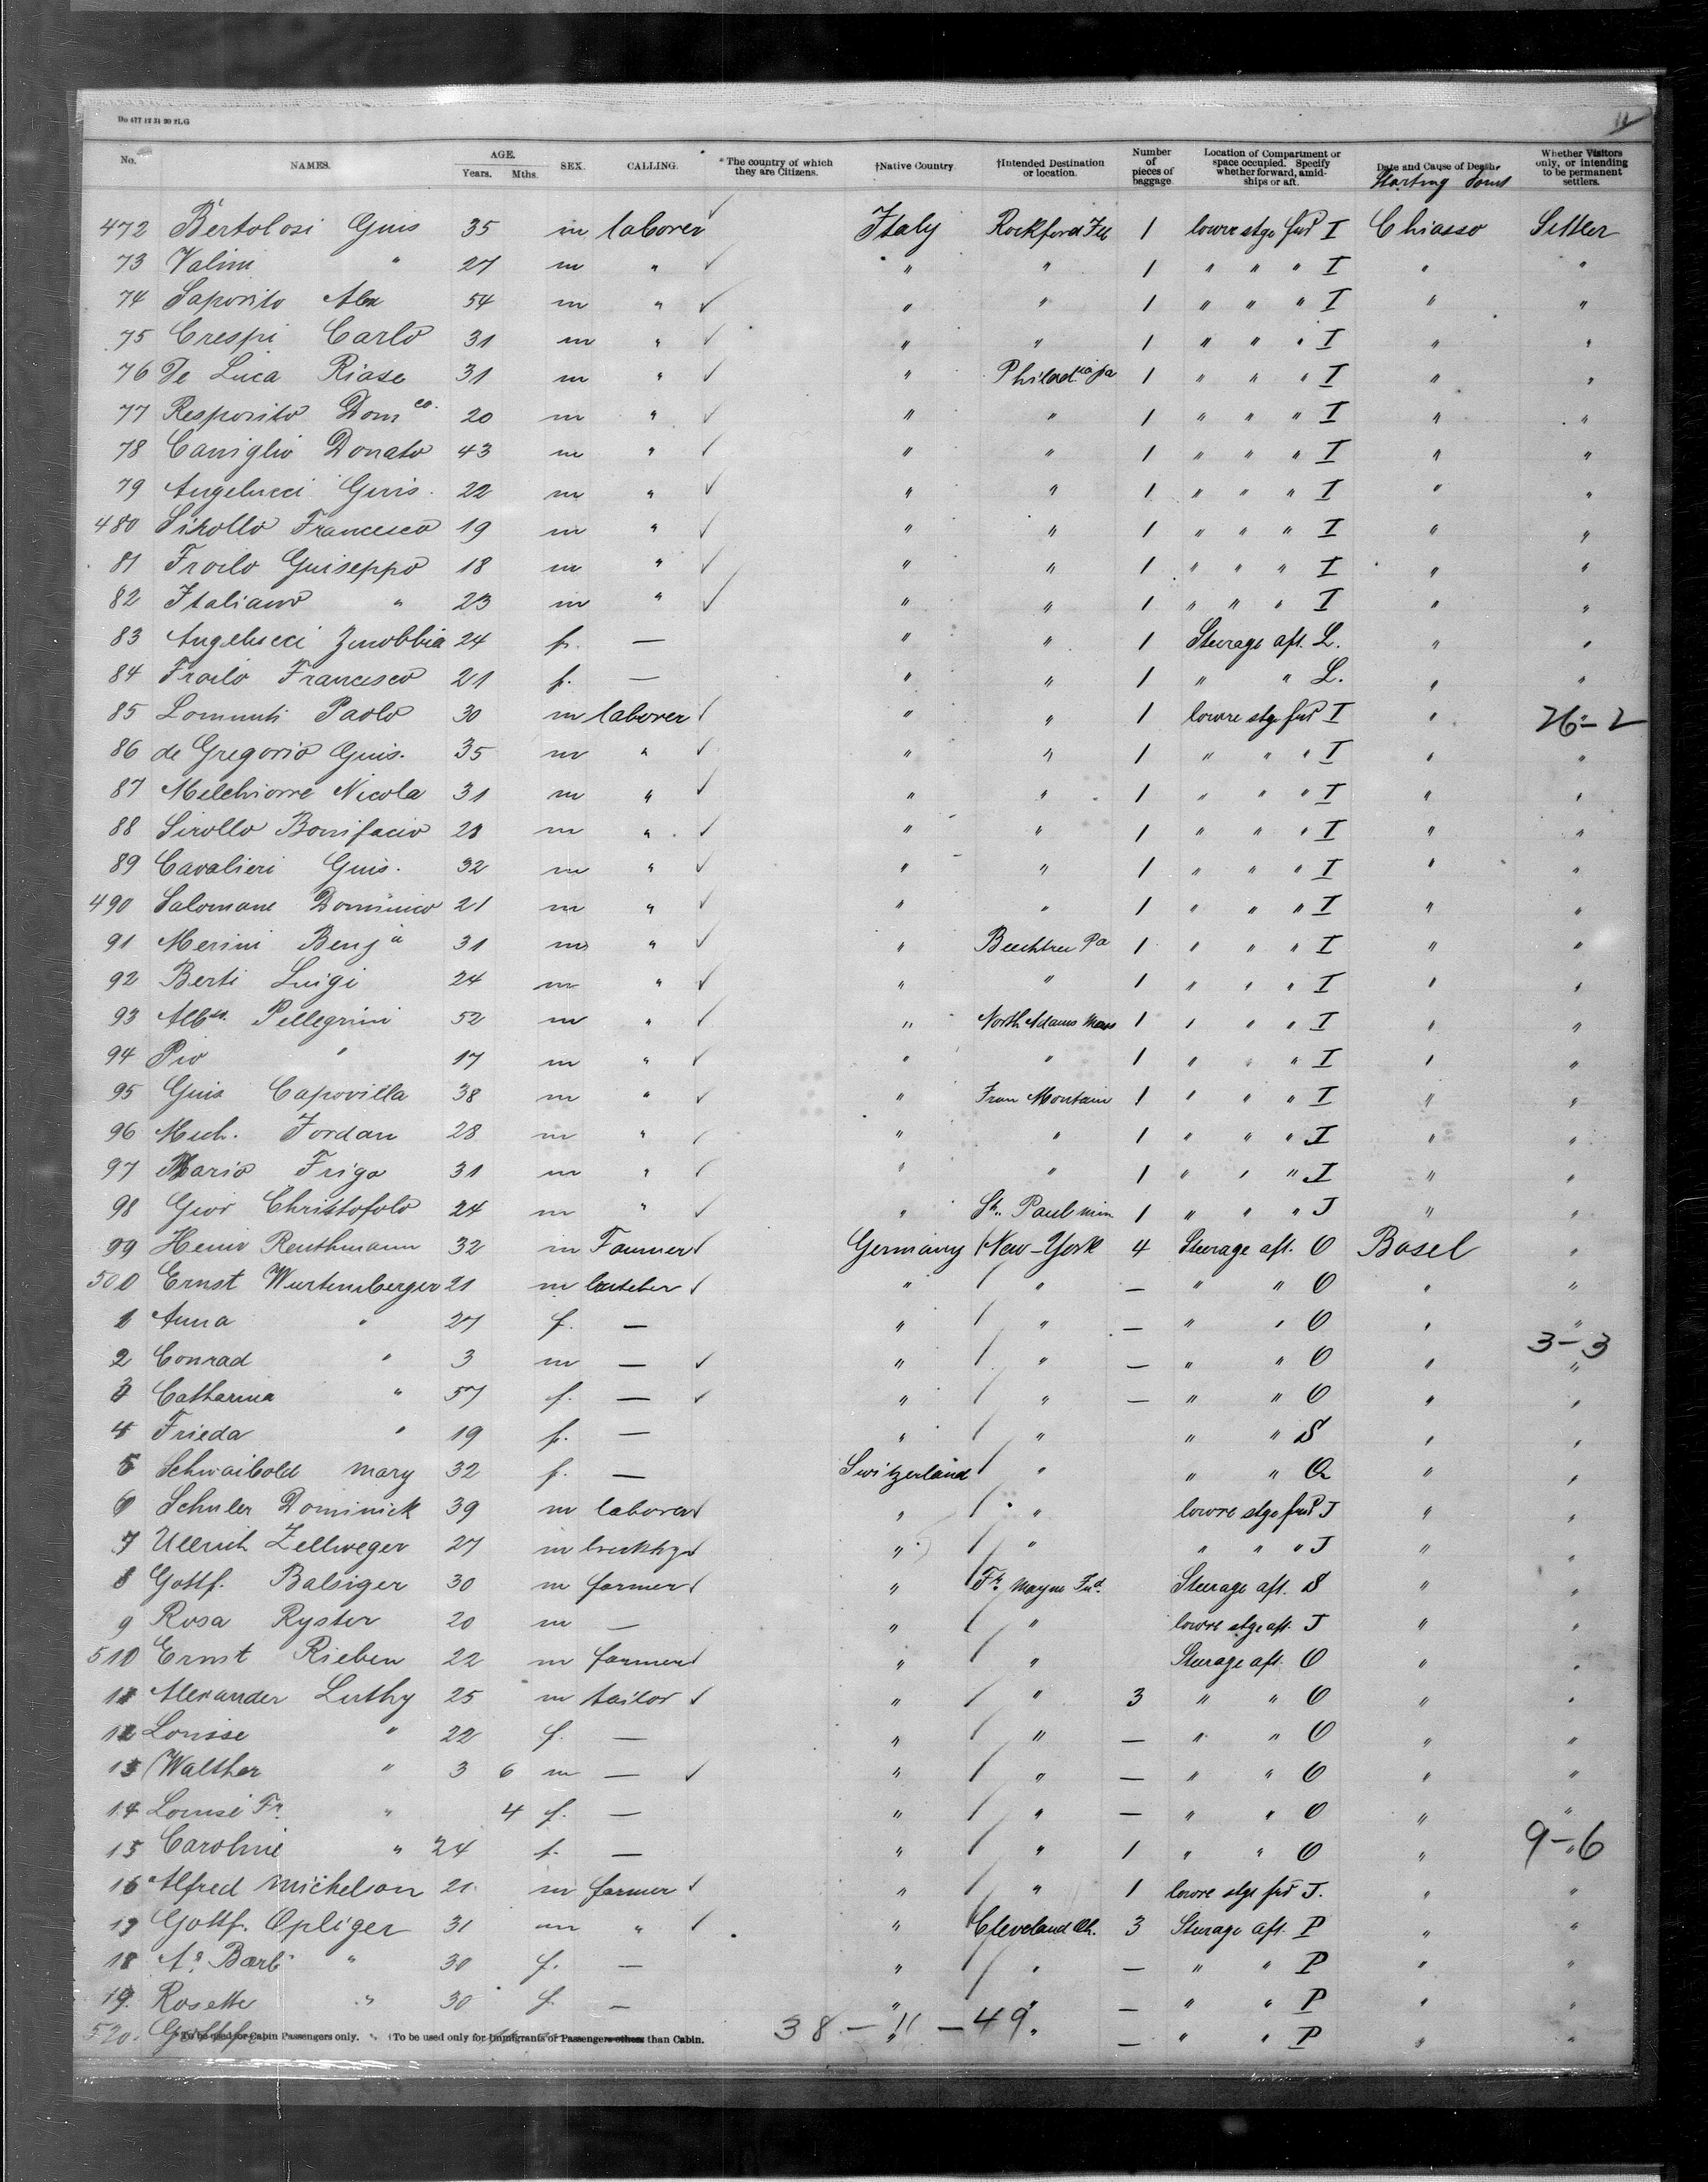 Do 477 12 31 90 FLG 11
No. NAMES. AGE. Years. Mths. SEX. CALLING. * The country of which they are Citizens. †Native Country. †Intended Destination or location. Number of pieces of baggage Location of Compartment or space occupied. Specify whether forward, amid-ships or aft. Date and Cause of Death. Whether Visitors only, or intending to be permanent settlers.
Starting point
472 Bertolosi Guis 35 m laborer Italy Rockford Ill 1 lowre stge fwd I Chiasso Settler
73 Valini " 27 m " " " 1 " " " I " "
74 Saporito Alex 54 m " " " 1 " " " I " "
75 Crespi Carlo 31 m " " " 1 " " " I " "
76 De Luca Biase 31 m " " Philad.ia pa 1 " " " I " "
77 Resporito Dom co. 20 m " " " 1 " " " I " "
78 Caniglio Donato 43 m " " " 1 " " " I " "
79 Angelucci Guis. 22 m " " " 1 " " " I " "
480 Sirollo Francesco 19 m " " " 1 " " " I " "
81 Froilo Guiseppo 18 m " " " 1 " " " I " "
82 Italiano " 23 m " " " 1 " " " I " "
83 Angelucci Zenobbia 24 f. — " " 1 Steerage aft. L. " "
84 Froilo Francesco 21 f. — " " 1 " " L. " "
85 Paolo 30 m laborer " " 1 lowre stge fwd I " " 26-2
86 de Gregorio Guis. 35 m " " " 1 " " " I " "
87 Melchiorre Nicola 31 m " " " 1 " " " I " "
88 Sirollo Bonifacio 28 m " " " 1 " " " I " "
89 Cavalieri Guis. 32 m " " " 1 " " " I " "
490 Salomane Dominico 21 m " " " 1 " " " I " "
91 Merini Benj a 31 m " " Beechtree Pa 1 " " " I " "
92 Berti Luigi 24 m " " " 1 " " " I " "
93 Pellegrini 52 m " " North Adams Mass 1 " " " I " "
94 Pio " 17 m " " " 1 " " " I " "
95 Guis Capovilla 38 m " " Iron Montain 1 " " " I " "
96 Mich. Jordan 28 m " " " 1 " " " I " "
97 Mario Frigo 31 m " " " 1 " " " I " "
98 Giov Christofolo 24 m " " St. Paul min 1 " " " J " "
99 Heinr Renthmann 32 m Farmer Germany New-York 4 Steerage aft. O Basel "
500 Ernst Wurtemberger 21 m butcher " " — " " O " "
1 Anna " 27 f. — " " — " " O " "
2 Conrad " 3 m — " " — " " O " " 3-3
3 Catharina " 57 f. — " " — " " O " "
4 Frieda " 19 f. — " " " " S " "
5 Schwaibold Mary 32 f. — Switzerland " " " Q " "
6 Schuler Dominick 39 m laborer " " lowre stge fwd J " "
7 Ullrich Zellweger 27 m " " " " " J " "
8 Gottf. Balsiger 30 m farmer " Ft. Wayne Ind. Steerage aft. S " "
9 Rosa Ryster 20 m — " " lowre stge aft. J " "
510 Ernst Rieben 22 m farmer " " Steerage aft. O " "
11 Alexander Luthy 25 m tailor " " 3 " " O " "
12 Louise " 22 f. — " " — " " O " "
13 Walther " 3 6 m — " " — " " O " "
14 Louise Fr. " 4 f. — " " — " " O " "
15 Caroline " 24 f. — " " 1 " " O " " 9-6
16 Alfred Michelson 21 m farmer " " 1 lowre stge fwd J. " "
17 Gottf. Opliger 31 m " " Cleveland Oh. 3 Steerage aft. P " "
18 Barb " 30 f. — " " — " " P " "
19 Rosette " 30 f. — " " — " " P " "
520. " " — " " P " "
38 — 11 — 49
* To be used for Cabin Passengers only. †To be used only for Immigrants or Passengers others than Cabin.